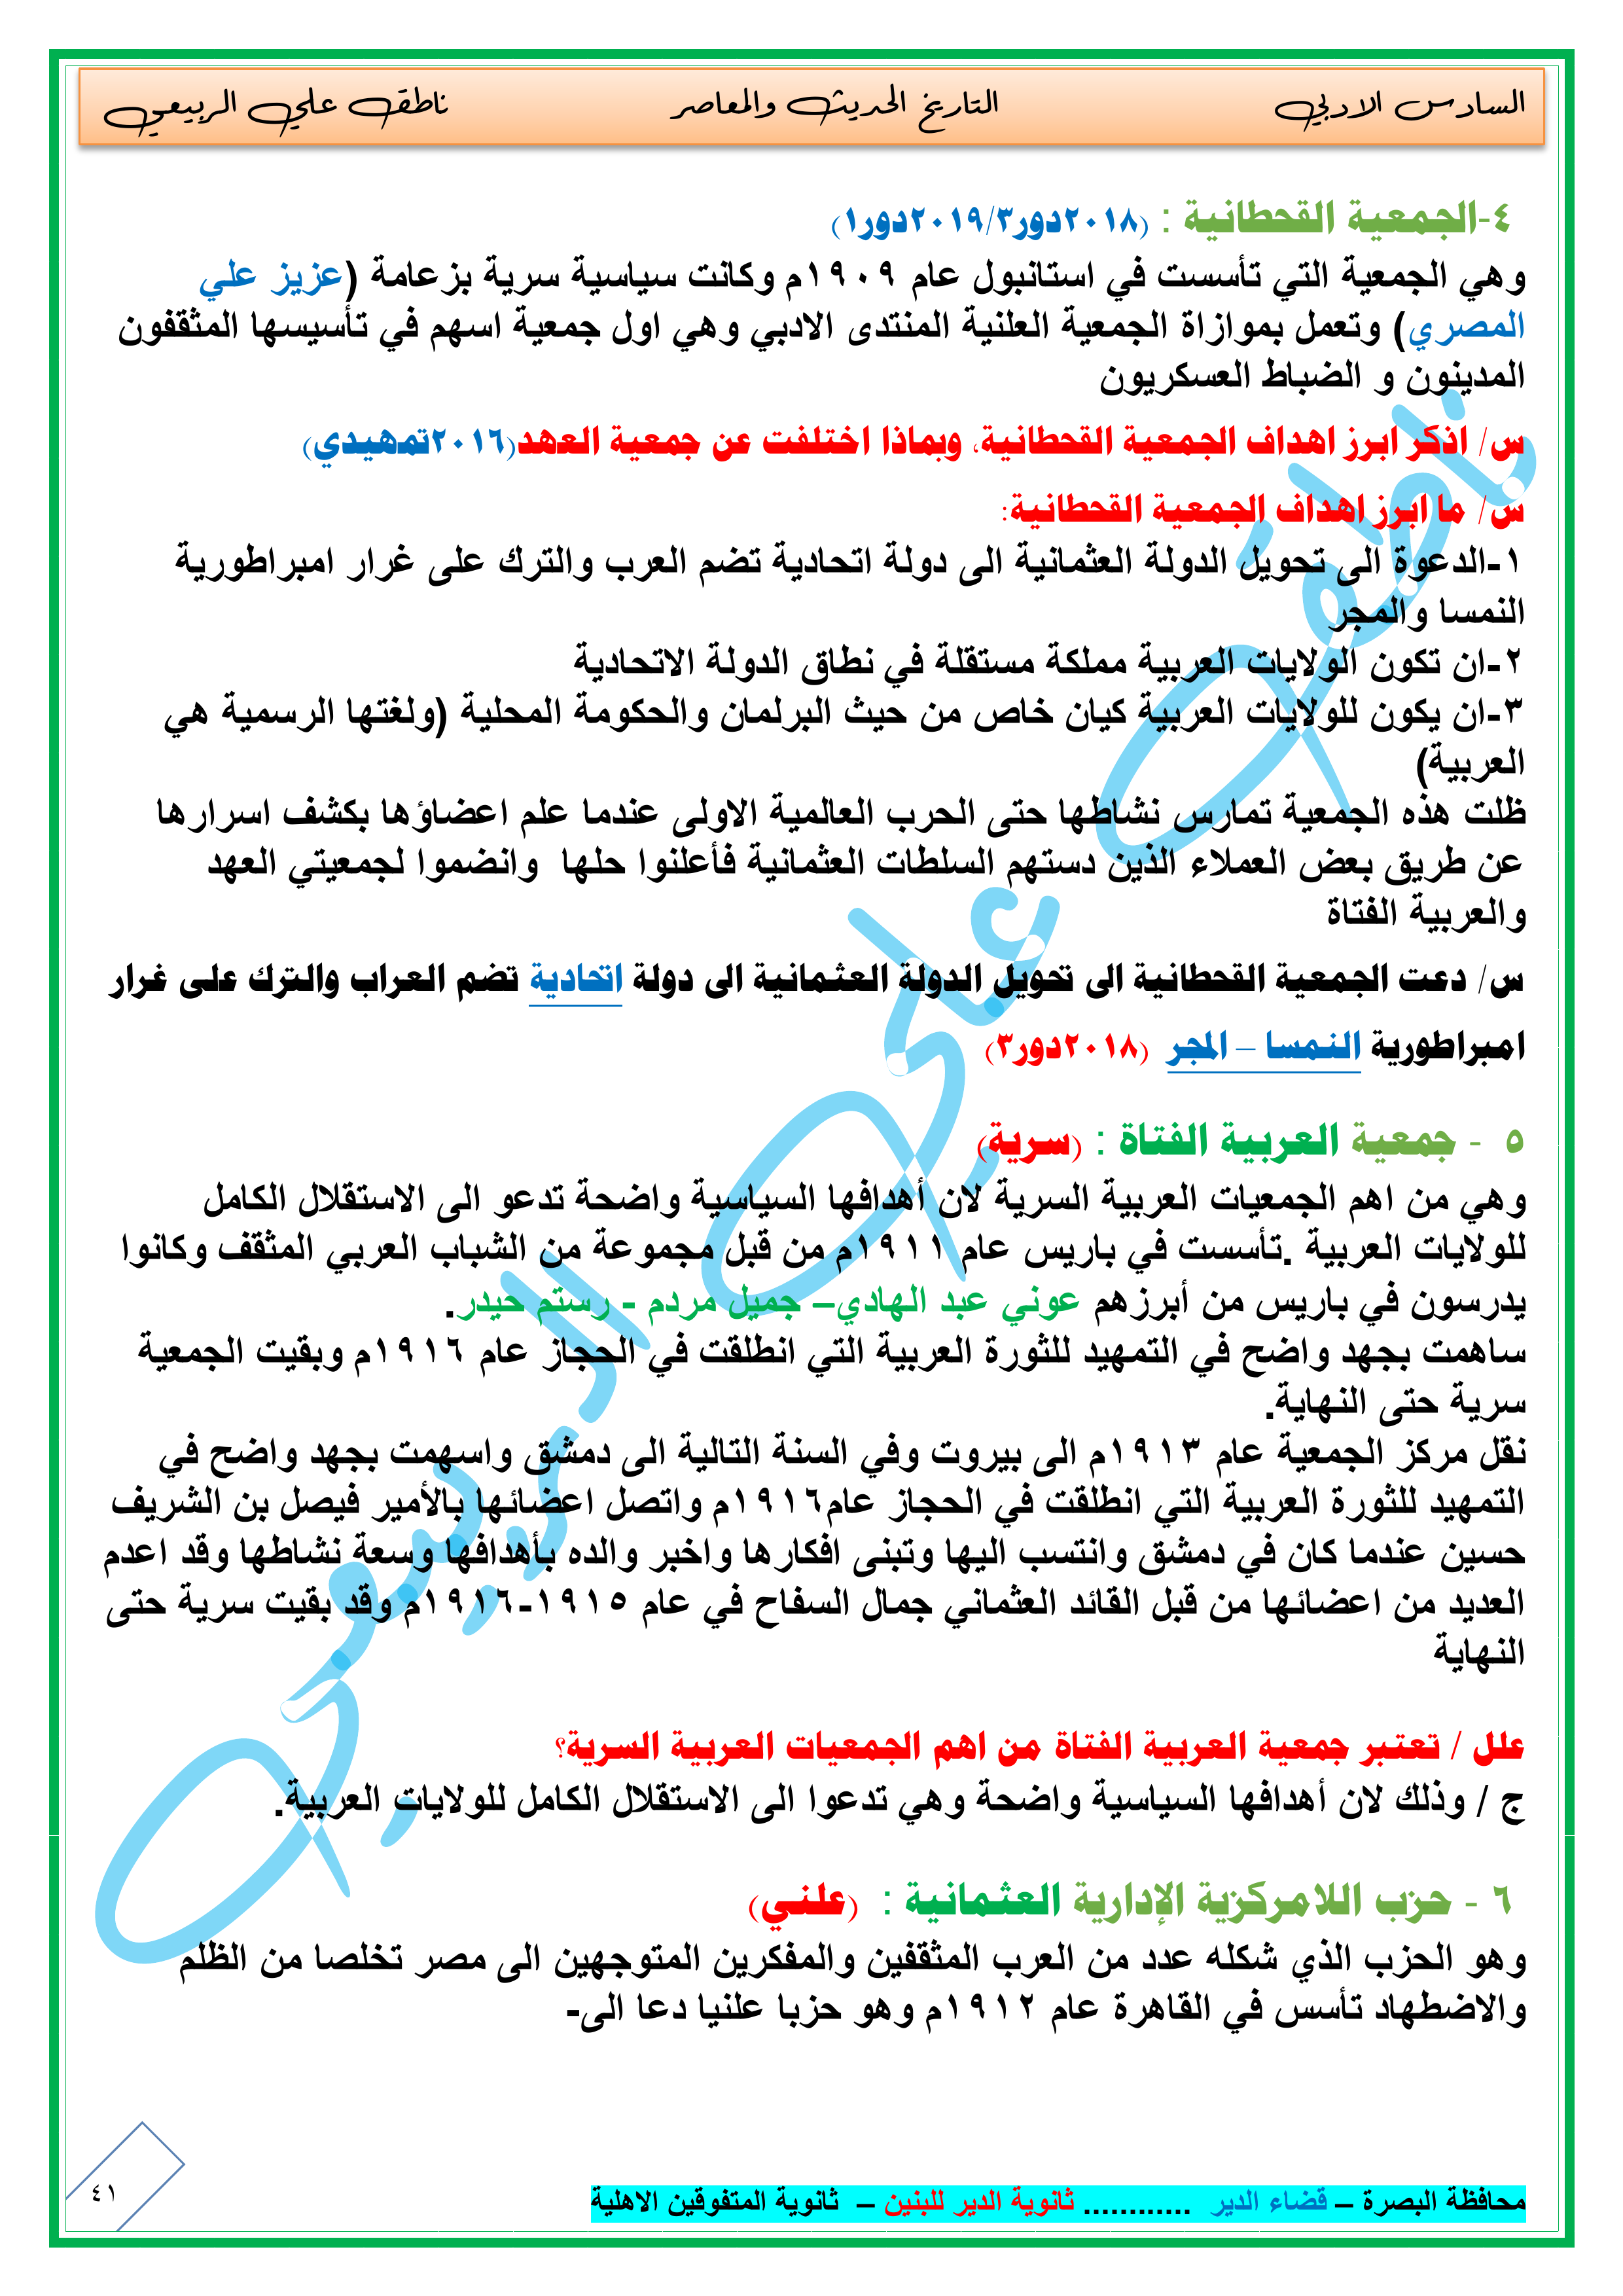 السادس الادبي التاريخ الحديث والمعاصر ناطق علي الربيعي
٤-الجمعية القحطانية : (٢٠١٨دور٢٠١٩/٣دور١)
وهي الجمعية التي تأسست في استانبول عام ١٩٠٩م وكانت سياسية سرية بزعامة (عزيز علي
المصري) وتعمل بموازاة الجمعية العلنية المنتدى الادبي وهي اول جمعية اسهم في تأسيسها المثقفون
المدينون و الضباط العسكريون
س/ اذكر ابرز اهداف الجمعية القحطانية، وبماذا اختلفت عن جمعية العهد(٢٠١٦تمهيدي)
س/ ما ابرز اهداف الجمعية القحطانية:
١-الدعوة الى تحويل الدولة العثمانية الى دولة اتحادية تضم العرب والترك على غرار امبراطورية
النمسا والمجر
٢-ان تكون الولايات العربية مملكة مستقلة في نطاق الدولة الاتحادية
٣-ان يكون للولايات العربية كيان خاص من حيث البرلمان والحكومة المحلية (ولغتها الرسمية هي
العربية)
ظلت هذه الجمعية تمارس نشاطها حتى الحرب العالمية الاولى عندما علم اعضاؤها بكشف اسرارها
عن طريق بعض العملاء الذين دستهم السلطات العثمانية فأعلنوا حلها وانضموا لجمعيتي العهد
والعربية الفتاة
س/ دعت الجمعية القحطانية الى تحويل الدولة العثمانية الى دولة اتحادية تضم العراب والترك على غرار
امبراطورية النمسا – المجر (٢٠١٨دور٣)
٥ - جمعية العربية الفتاة : (سرية)
وهي من اهم الجمعيات العربية السرية لان أهدافها السياسية واضحة تدعو الى الاستقلال الكامل
للولايات العربية .تأسست في باريس عام ١٩١١م من قبل مجموعة من الشباب العربي المثقف وكانوا
يدرسون في باريس من أبرزهم عوني عبد الهادي– جميل مردم - رستم حيدر.
ساهمت بجهد واضح في التمهيد للثورة العربية التي انطلقت في الحجاز عام ١٩١٦م وبقيت الجمعية
سرية حتى النهاية.
نقل مركز الجمعية عام ١٩١٣م الى بيروت وفي السنة التالية الى دمشق واسهمت بجهد واضح في
التمهيد للثورة العربية التي انطلقت في الحجاز عام١٩١٦م واتصل اعضائها بالأمير فيصل بن الشريف
حسين عندما كان في دمشق وانتسب اليها وتبنى افكارها واخبر والده بأهدافها وسعة نشاطها وقد اعدم
العديد من اعضائها من قبل القائد العثماني جمال السفاح في عام ١٩١٥-١٩١٦م وقد بقيت سرية حتى
النهاية
علل / تعتبر جمعية العربية الفتاة من اهم الجمعيات العربية السرية؟
ج / وذلك لان أهدافها السياسية واضحة وهي تدعوا الى الاستقلال الكامل للولايات العربية.
٦ - حزب اللامركزية الإدارية العثمانية : (علني)
وهو الحزب الذي شكله عدد من العرب المثقفين والمفكرين المتوجهين الى مصر تخلصا من الظلم
والاضطهاد تأسس في القاهرة عام ١٩١٢م وهو حزبا علنيا دعا الى-
ناطق علي الربيعي
محافظة البصرة – قضاء الدير ............ ثانوية الدير للبنين – ثانوية المتفوقين الاهلية
٤١